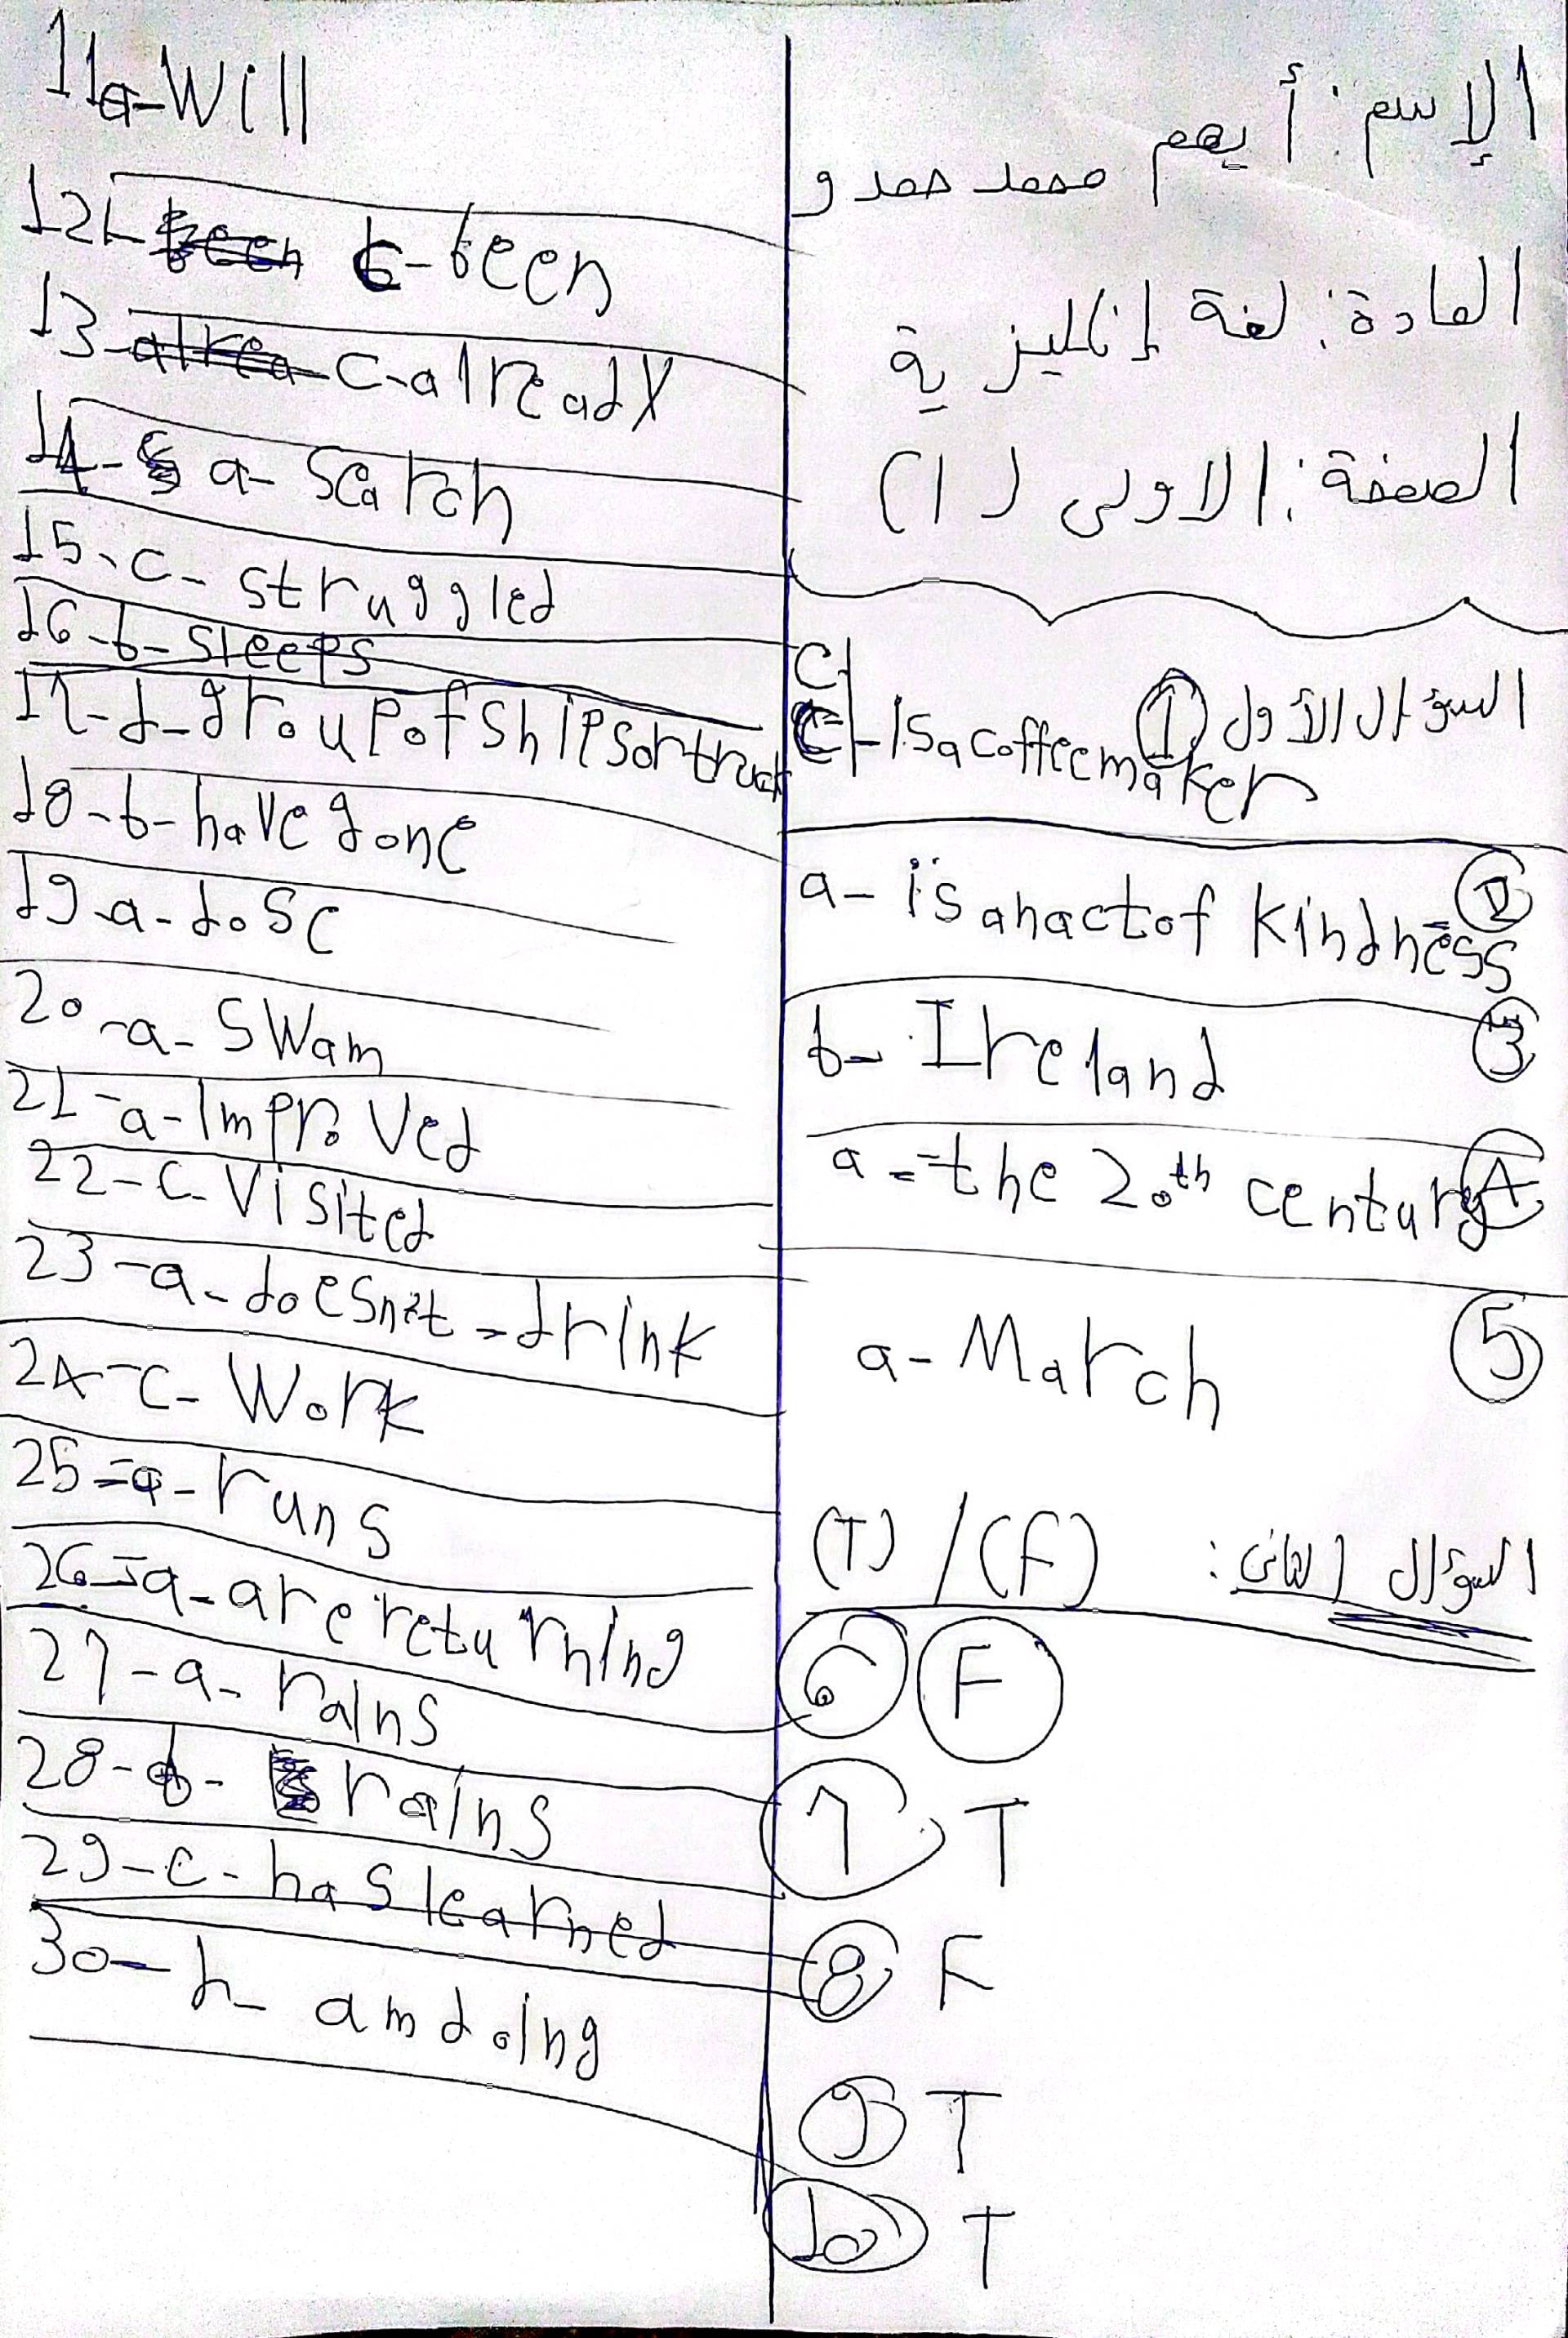 الإسم: أيهم محمد حمدو
المادة: لغة إنكليزية
الصفحة: الاولى (1)
السؤال الأول
1 c - Is a coffee maker
2 a - is an act of kindness
3 b - Ireland
4 a - the 20th century
5 a - March
السؤال الثاني: (T) / (F)
6 F
7 T
8 F
9 T
10 T
11 a - Will
12 - b - been
13 - c - already
14 - a - search
15 - c - struggled
16 - b - sleeps
17 - d - group of ships or truck
18 - b - have gone
19 - a - dose
20 - a - swam
21 - a - Improved
22 - c - Visited
23 - a - doesn't - drink
24 - c - Work
25 - a - runs
26 - a - are returning
27 - a - rains
28 - b - rains
29 - c - has learned
30 - b - am doing